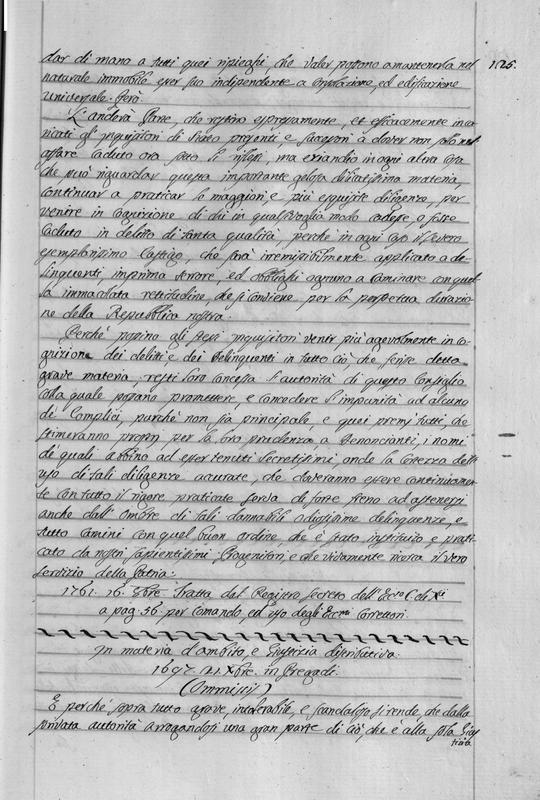 125.
dar di mano a tutti quei ripieghi, che valer possono a mantenerla nel
naturale immobile esser suo indipendente a consolazione, ed edificazione
universale. Però
L'anderà Parte, che restino espressamente, et efficacemente inca-
ricati gl'Inquisitori di Stato presenti, e successori à dover non solo nel
affare caduto ora sotto li riflessi, ma eziandio in ogni altra cosa
che può riguardar questa importante gelosa dilicatissima materia,
continuar a praticar le maggiori e più esquisite diligenze, per
venire in cognizione di chi in qualsivoglia modo cadesse, o fosse
caduto in delitto di tanta qualità, perchè in ogni caso il severo
esemplarissimo castigo, che sarà irremisibilmente applicato a de-
linquenti, imprima terrore, ed obblighi ognuno a caminare con quel-
la immacolata rettitudine, che si conviene per la perpetua durazio-
ne della Repubblica nostra.
Perchè possino gli stessi Inquisitori venir più agevolmente in co-
gnizione dei delitti e dei Delinquenti in tutto ciò, che ferisce detta
grave materia, resti loro concessa l'autorità di questo Consiglio
colla quale possano promettere, e concedere l'impunità ad alcuno
di Complici, purchè non sia principale, e quei premj tutti, che
stimeranno proprj per la loro prudenza a Denoncianti, i nomi
de quali abbino ad esser tenuti secretissimi, onde la certezza dell'
uso di tali diligenze accurate, che doveranno essere continuamen-
te con tutto il rigore praticate serva di forte freno ad astenersi
anche dall'ombre di tali dannabili odiosissime delinquenze, e
tutto camini con quel buon ordine, che è stato instituito, e prati-
cato da nostri sapientissimi Progenitori, e che vivamente ricerca il vero
servizio della Patria.
1761. 16. 8bre Tratta dal Registro secreto dell'Eccso C. di Xci
a pag: 56. per comando, ed uso degli Eccmi Correttori.
In materia d'ambito, e Giustizia distributiva.
1697. 21. Xbre. in Pregadi.
(Ommissis)
E perchè sopra tutto grave, intolerabile, e scandaloso si rende, che dalla
privata autorità arrogandosi una gran parte di ciò, che è alla sola Gius-
tizia